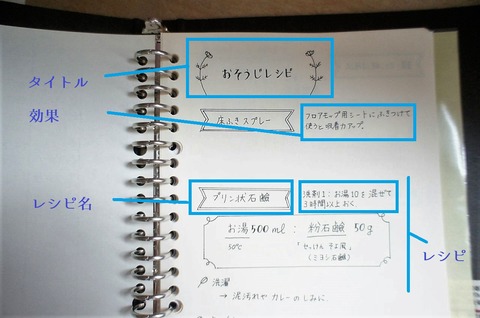 おそうじレシピ
タイトル
効果
床ふきスプレー
フロアモップ用シートにふきつけて
使うと吸着力アップ。
レシピ名
プリン状石鹸
洗剤1：お湯10を混ぜて
3時間以上おく。
お湯500ml : 粉石鹸 50g
50℃
「せっけん そよ風」
(ミヨシ石鹸)
レシピ
洗濯
→ 泥汚れやカレーのしみに.